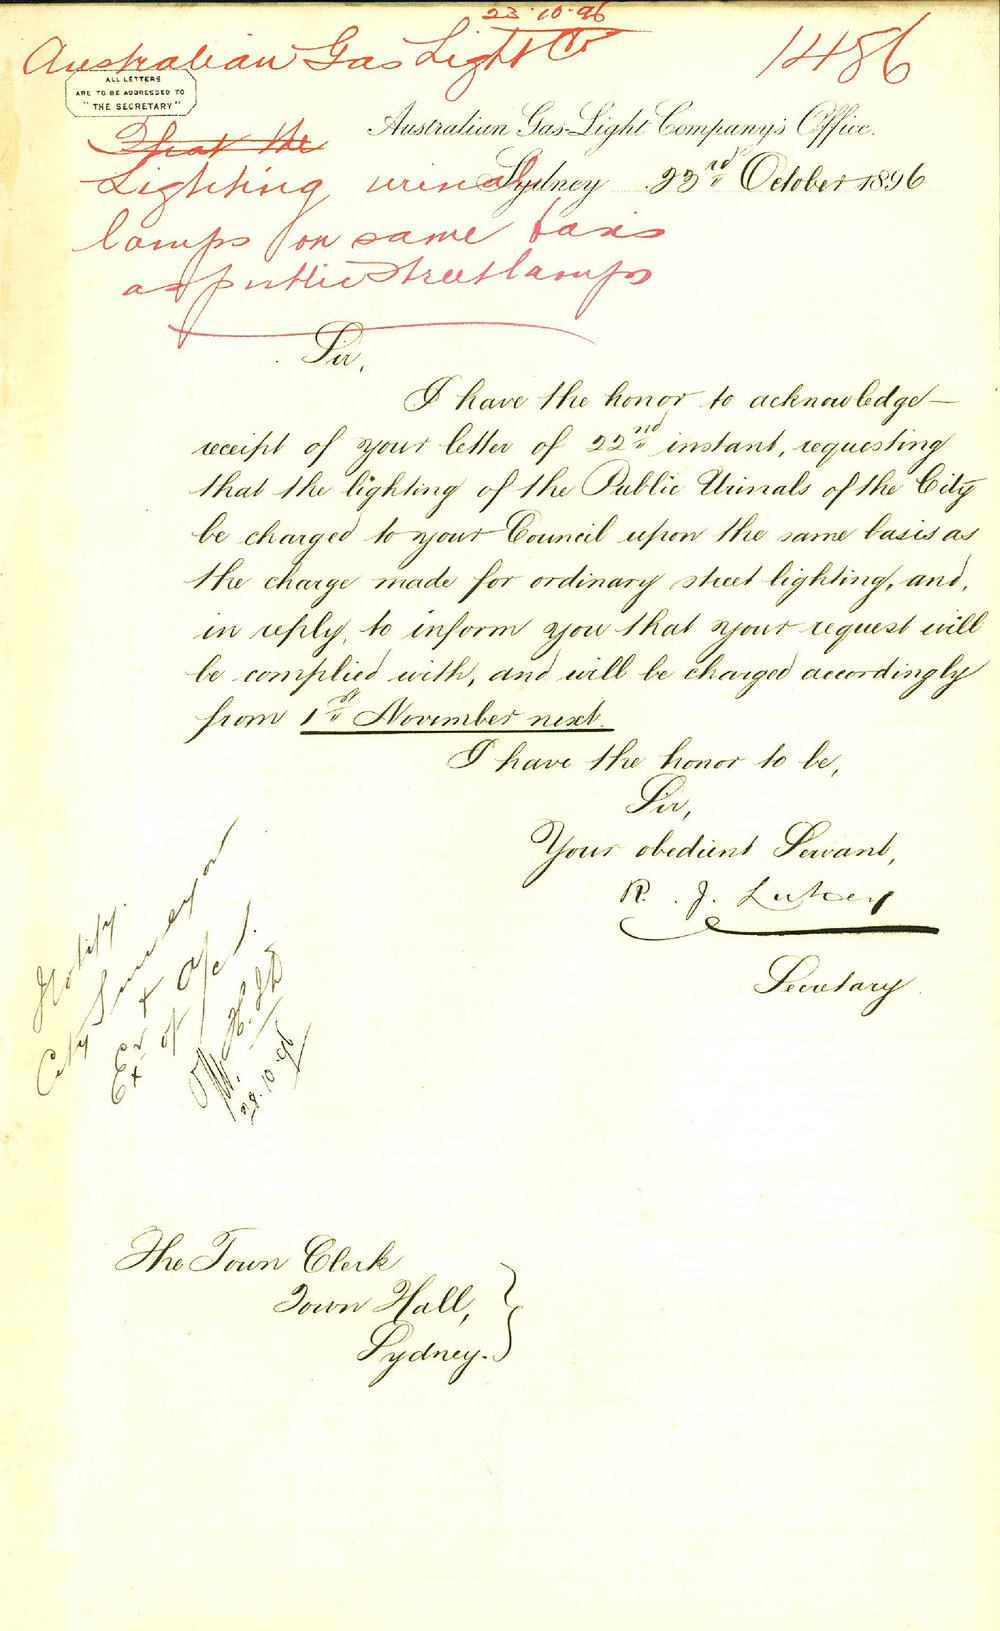 23.10.96
Australian Gas Light Co
1486
ALL LETTERS
ARE TO BE ADDRESSED TO
"THE SECRETARY"
Australian Gas-Light Company's Office.
That the
Sydney 23rd October 1896
Lighting urinal
lamps on same basis
as public street lamps
Sir,
I have the honor to acknowledge
receipt of your letter of 22nd instant, requesting
that the lighting of the Public Urinals of the City
be charged to your Council upon the same basis as
the charge made for ordinary street lighting, and,
in reply, to inform you that your request will
be complied with, and will be charged accordingly
from 1st November next.
I have the honor to be,
Sir,
Your obedient Servant,
R. J. Lukey
Secretary.
Notify.
City Surveyor
Ex of
28.10.96
The Town Clerk
Town Hall,
Sydney.